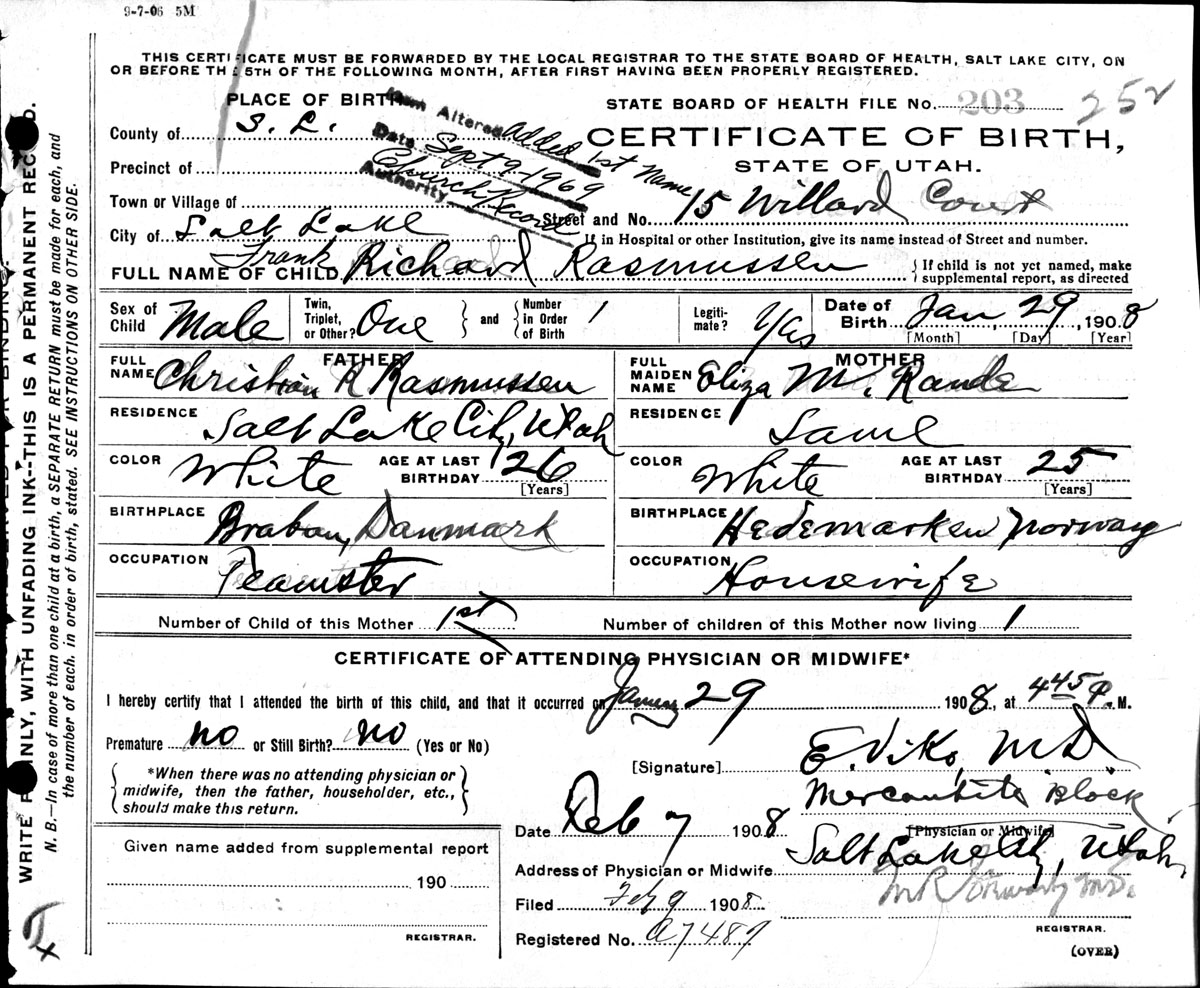 9-7-06 5M
THIS CERTIFICATE MUST BE FORWARDED BY THE LOCAL REGISTRAR TO THE STATE BOARD OF HEALTH, SALT LAKE CITY, ON
OR BEFORE THE 5TH OF THE FOLLOWING MONTH, AFTER FIRST HAVING BEEN PROPERLY REGISTERED.
PLACE OF BIRTH
STATE BOARD OF HEALTH FILE No. 203 252
County of S. L.
Altered Added 1st Name
Date Sept 9-1969
Authority Church Record
CERTIFICATE OF BIRTH,
STATE OF UTAH.
Precinct of
Town or Village of
Street and No. 15 Willard Court
City of Salt Lake
If in Hospital or other Institution, give its name instead of Street and number.
FULL NAME OF CHILD Frank Richard Rasmussen
If child is not yet named, make
supplemental report, as directed
Sex of Child Male
Twin, Triplet, or Other? One and Number in Order of Birth 1
Legiti-mate? Yas
Date of Birth Jan 29, 1908
[Month] [Day] [Year]
FATHER
FULL NAME Christian R Rasmussen
RESIDENCE Salt Lake City, Utah
COLOR White AGE AT LAST BIRTHDAY 26
[Years]
BIRTHPLACE Braban, Danmark
OCCUPATION Teamster
MOTHER
FULL MAIDEN NAME Eliza M.
RESIDENCE Same
COLOR White AGE AT LAST BIRTHDAY 25
[Years]
BIRTHPLACE Hedemarken Norway
OCCUPATION Housewife
Number of Child of this Mother 1st Number of children of this Mother now living 1
CERTIFICATE OF ATTENDING PHYSICIAN OR MIDWIFE*
I hereby certify that I attended the birth of this child, and that it occurred on January 29 1908, at 4 45 P. M.
Premature no or Still Birth? no (Yes or No)
*When there was no attending physician or
midwife, then the father, householder, etc.,
should make this return.
[Signature] E. Viko, M D.
Mercantile Block
[Physician or Midwife]
Date Feb 7 1908
Address of Physician or Midwife Salt Lake City, Utah
Filed Feb 9 1908
Registered No. a7489
REGISTRAR.
(OVER)
Given name added from supplemental report
190
REGISTRAR.
WRITE PLAINLY, WITH UNFADING INK--THIS IS A PERMANENT RECORD.
N. B.—In case of more than one child at a birth, a SEPARATE RETURN must be made for each, and
the number of each, in order of birth, stated. SEE INSTRUCTIONS ON OTHER SIDE.